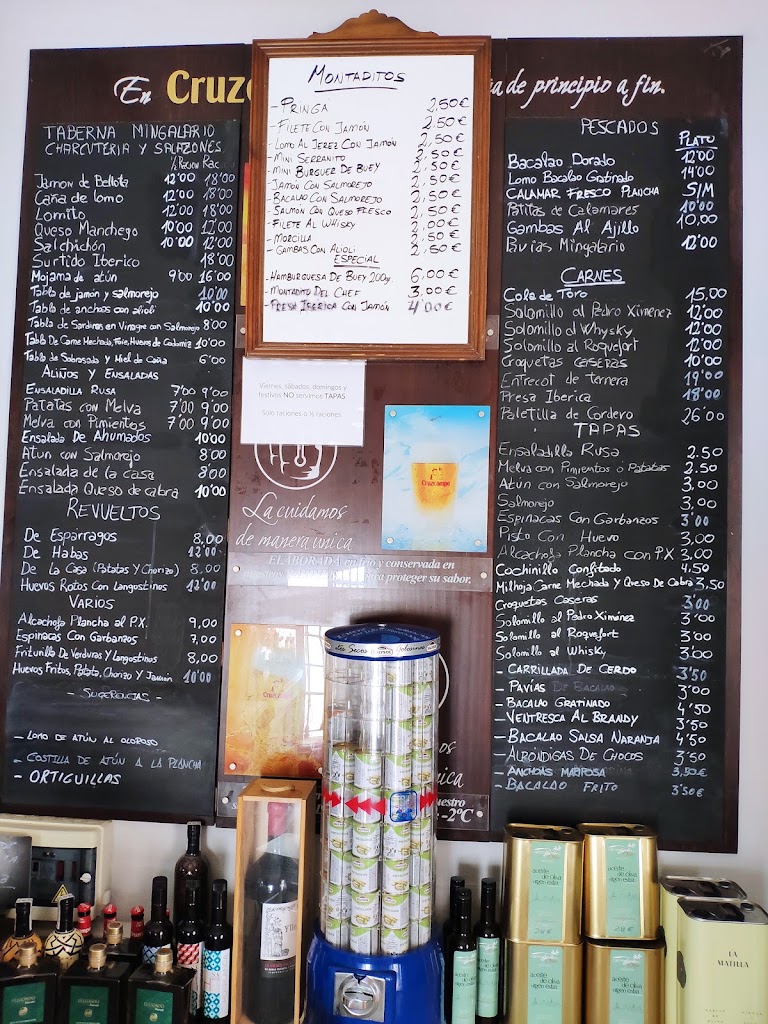 En Cruzc
a de principio a fin.
TABERNA MINGALARIO
CHARCUTERIA Y SALAZONES
½ Racion Rac
Jamon de Bellota 12'00 18'00
Caña de lomo 12'00 18'00
Lomito 12'00 18'00
Queso Manchego 10'00 17'00
Salchichón 10'00 12'00
Surtido Iberico 18'00
Mojama de atún 9'00 16'00
Tabla de jamón y salmorejo 10'00
Tabla de anchoas con alioli 10'00
Tabla de Sardinas en Vinagre con Salmorejo 8'00
Tabla De Carne Mechada, Foie, Huevos de Codorniz 10'00
Tabla de Sobrasada y Miel de Caña 6'00
ALIÑOS Y ENSALADAS
ENSALADILLA RUSA 7'00 9'00
PATATAS CON MELVA 7'00 9'00
MELVA CON PIMIENTOS 7'00 9'00
ENSALADA DE AHUMADOS 10'00
ATUN CON SALMOREJO 8'00
ENSALADA DE LA CASA 8'00
ENSALADA QUESO DE CABRA 10'00
REVUELTOS
DE ESPÁRRAGOS 8,00
DE HABAS 12'00
DE LA CASA (PATATAS Y CHORIZO) 8,00
HUEVOS ROTOS CON LANGOSTINOS 12'00
VARIOS
ALCACHOFA PLANCHA AL P.X. 9,00
ESPINACAS CON GARBANZOS 7,00
FRITURILLO DE VERDURAS Y LANGOSTINOS 8,00
HUEVOS FRITOS, PATATA, CHORIZO Y JAMÓN 10'00
- SUGERENCIAS -
- LOMO DE ATÚN AL OLOROSO
- COSTILLA DE ATÚN A LA PLANCHA
- ORTIGUILLAS
MONTADITOS
- PRINGA 2,50€
- FILETE CON JAMÓN 2.50€
- LOMO AL JEREZ CON JAMÓN 2,50€
- MINI SERRANITO 2,50€
- MINI BURGUER DE BUEY 2,50€
- JAMÓN CON SALMOREJO 2,50€
- BACALAO CON SALMOREJO 2,50€
- SALMÓN CON QUESO FRESCO 2,50€
- FILETE AL WHISKY 2,00€
- MORCILLA 2,50€
- GAMBAS CON ALIOLI 2,50€
ESPECIAL
- HAMBURGUESA DE BUEY 200g. 6,00€
- MONTADITO DEL CHEF 3,00€
- PRESA IBERICA CON JAMÓN 4'00€
Viernes, sábados, domingos y
festivos NO servimos TAPAS
Solo raciones o ½ raciones.
La cuidamos
de manera única
Cruzcampo
ELABORADA en frío y conservada en
proteger su sabor.
PESCADOS
PLATO
Bacalao Dorado 12'00
Lomo Bacalao Gratinado 14'00
CALAMAR FRESCO PLANCHA S/M
Patitas de Calamares 10'00
Gambas Al Ajillo 10,00
Pavias Mingalario 12'00
CARNES
Cola de Toro 15,00
Solomillo al Pedro Ximenez 12'00
Solomillo al Whysky 12'00
Solomillo al Roquefort 12'00
Croquetas caseras 10'00
Entrecot de Ternera 19'00
Presa Iberica 18'00
Paletilla de Cordero 26'00
TAPAS
Ensaladilla Rusa 2.50
Melva con Pimientos ó Patatas 2.50
Atún con Salmorejo 3,00
Salmorejo 3,00
Espinacas Con Garbanzos 3'00
Pisto Con Huevo 3,00
Alcachofa Plancha con P.X 3,00
Cochinillo Confitado 4,50
Milhoja Carne Mechada y Queso De Cabra 3,50
Croquetas Caseras 3'00
Solomillo al Pedro Ximénez 3,00
Solomillo al Roquefort 3'00
Solomillo al Whisky 3'00
- CARRILLADA DE CERDO 3'50
- PAVIAS DE BACALAO 3'00
- BACALAO GRATINADO 4'50
- VENTRESCA AL BRANDY 3'50
- BACALAO SALSA NARANJA 4'50
- ALBÓNDIGAS DE CHOCOS 3'50
- ANCHOAS MARIPOSA 3,50€
- BACALAO FRITO 3'50€
Cruzcampo
única
uestro
-2ºC
aceite
de oliva
virgen extra
aceite
de oliva
virgen extra
aceite
de oliva
virgen extra
aceite
de oliva
virgen extra
LA
MATILLA